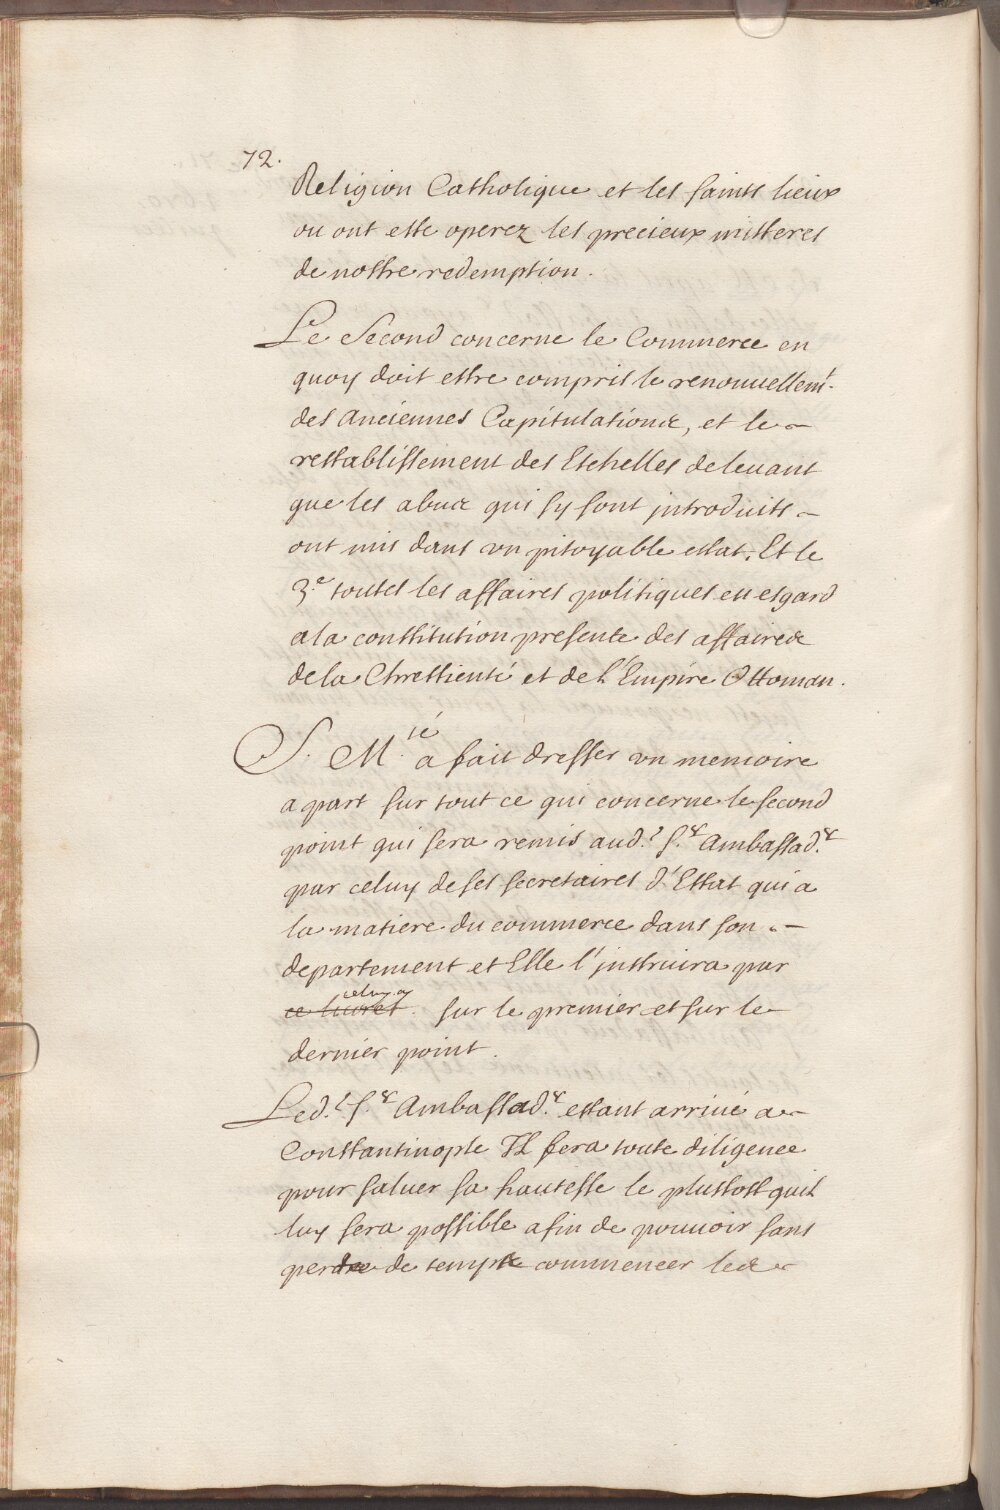 72.
Religion Catholique et les saints lieux
ou ont esté operez les precieux misteres
de nostre redemption.
Le Second concerne le Commerce en
quoy doit estre compris le renouuellemt.
des Anciennes Capitulations, et le
restablissement des Eschelles de leuant
que les abus qui sy sont introduits
ont mis dans vn pitoyable estat. Et le
3e. toutes les affaires politiques eu esgard
a la constitution presente des affaires
de la Chrestienté et de l'Empire Ottoman.
S. M.té a fait dresser vn memoire
a part sur tout ce qui concerne le second
point qui sera remis aud.t S.r Ambassad.r
par celuy de ses secretaires d'Estat qui a
la matiere du commerce dans son
departement et Elle l'instruira par
celuy cy
ce liuret sur le premier et sur le
dernier point.
Led.t S.r Ambassad.r estant arriué a
Constantinople Il fera toute diligence
pour saluer sa hautesse le plustost quil
luy sera possible afin de pouuoir sans
perdre de temps commencer les